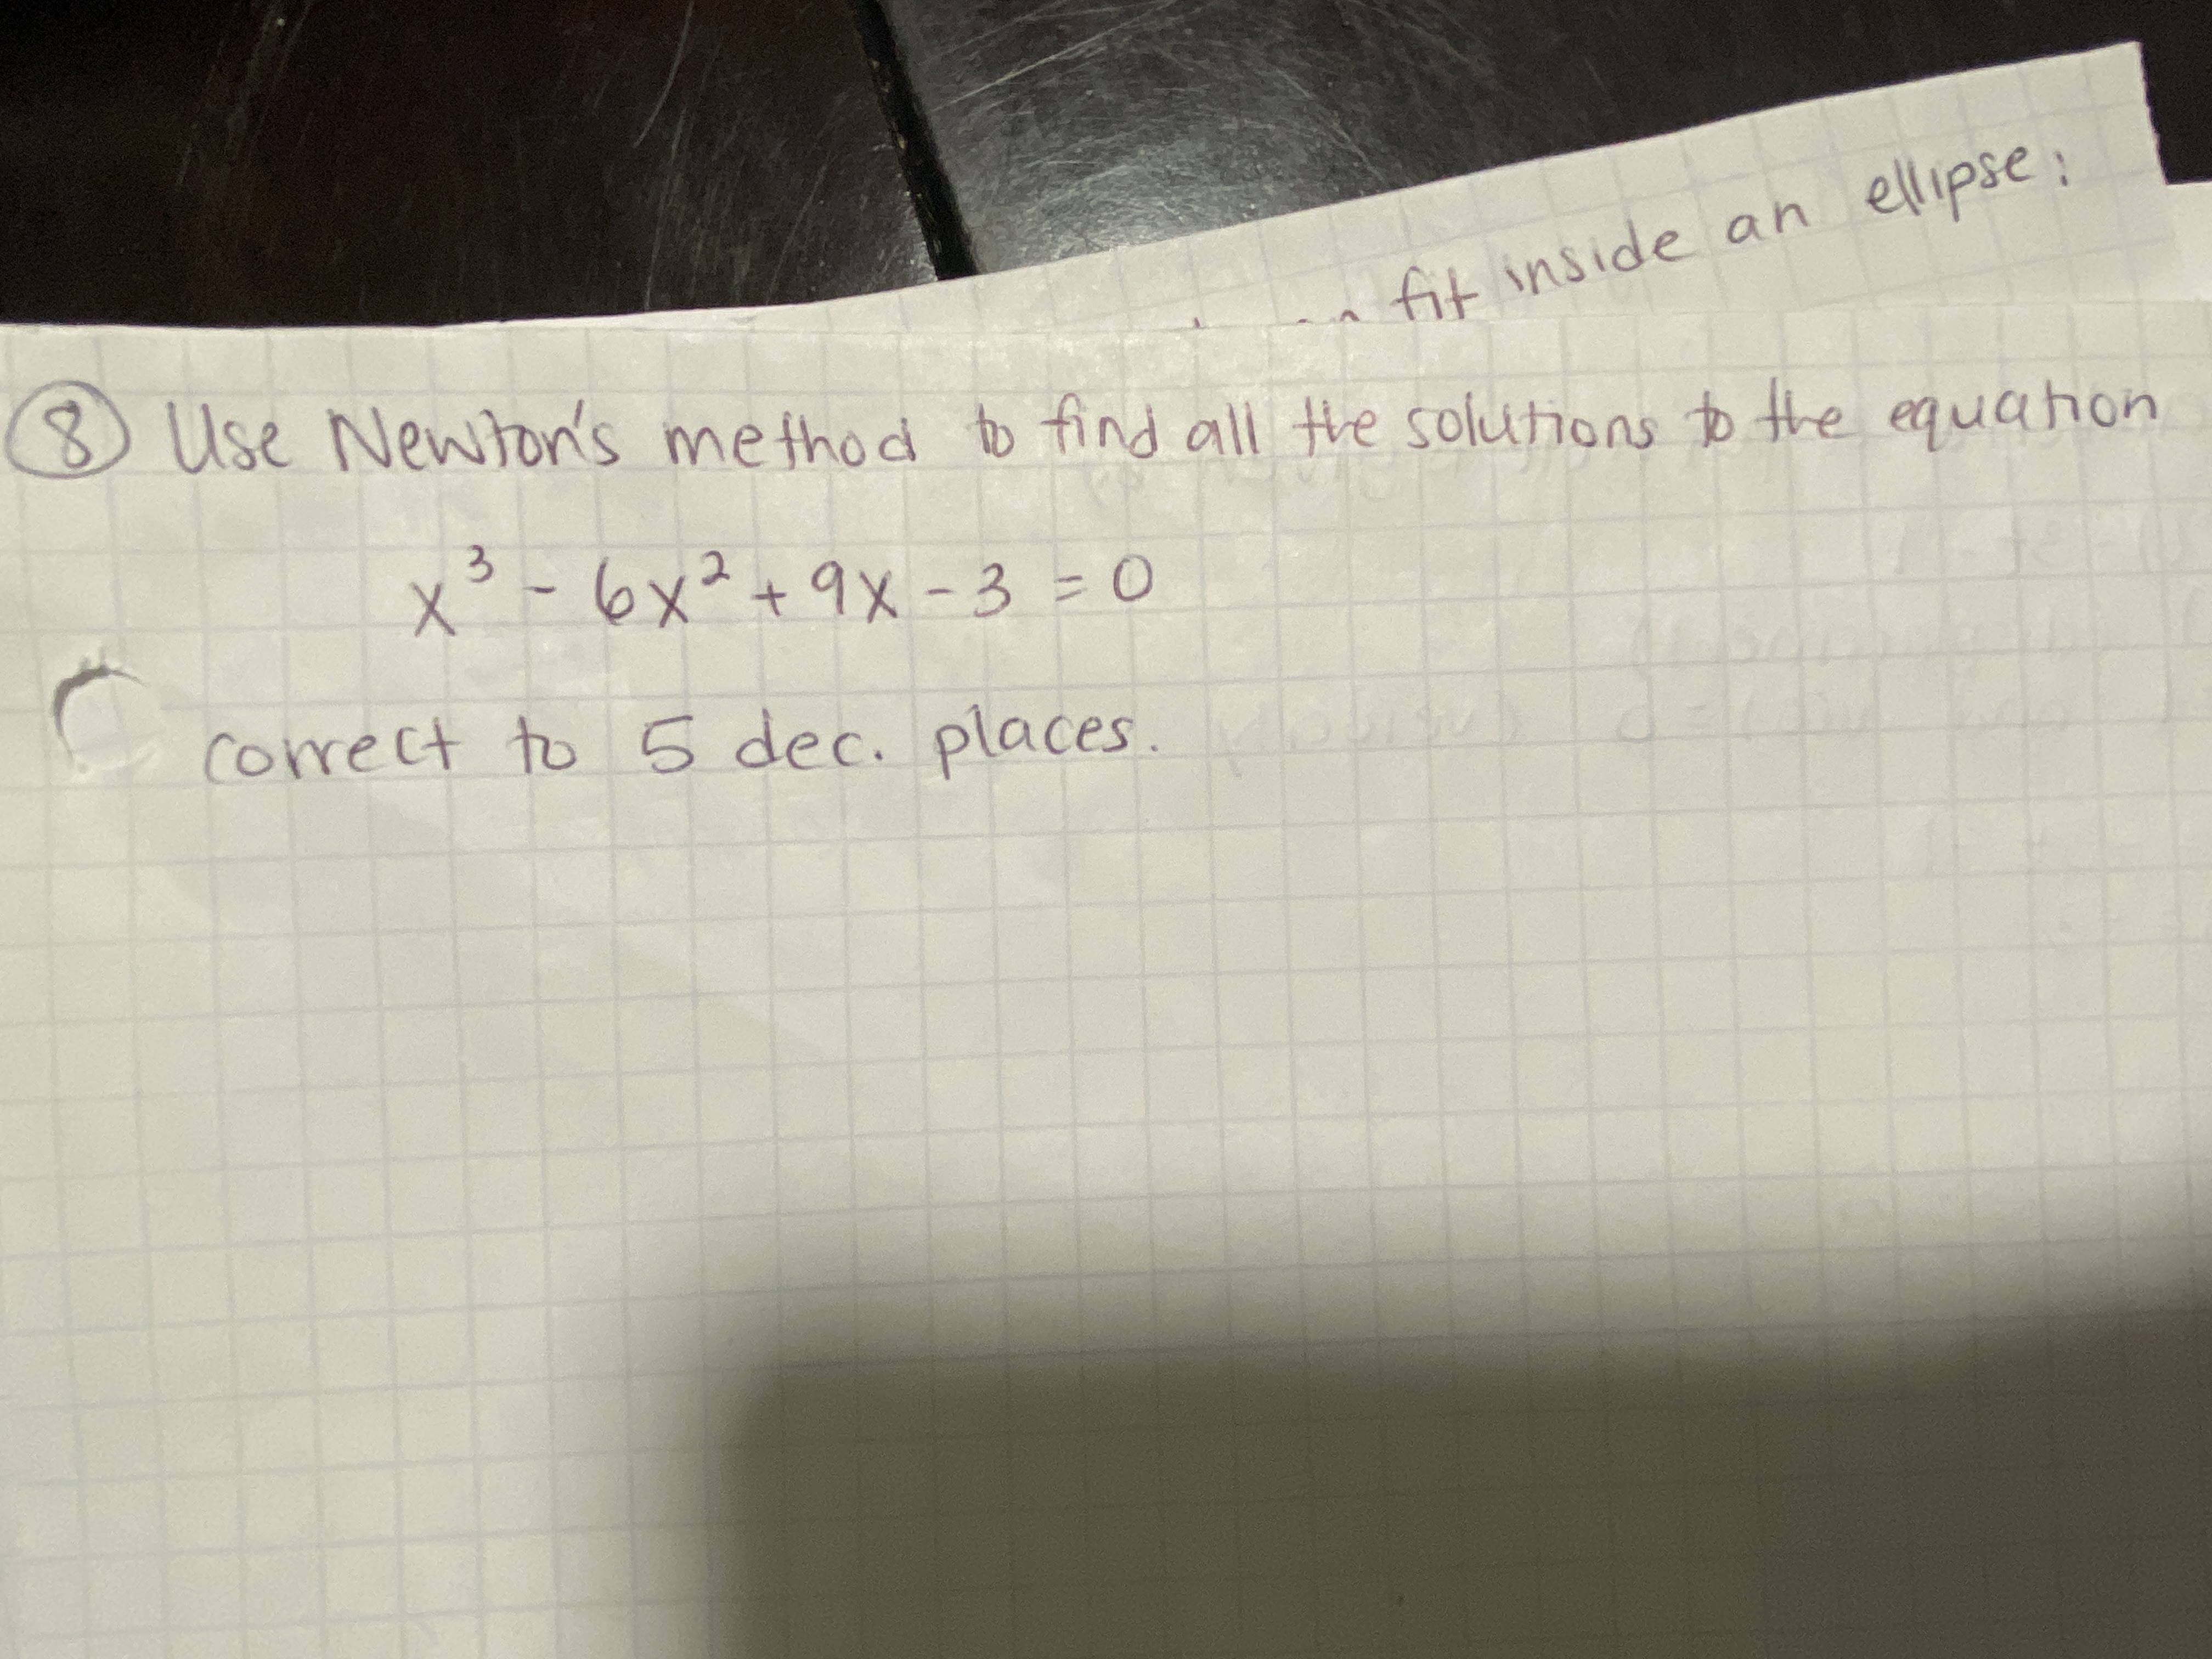 fit inside an ellipse:
⑧ Use Newton's method to find all the solutions to the equation
x³ - 6x² + 9x - 3 = 0
correct to 5 dec. places.